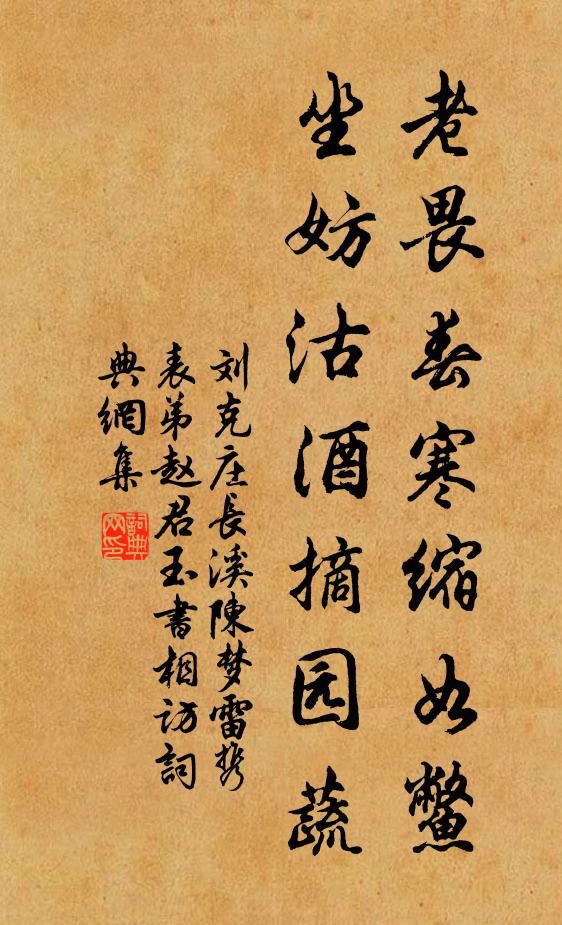 老畏春寒缩如鳖
坐妨沽酒摘园蔬
刘克庄長溪陳梦雷携
表弟赵君玉書相访詞
典網集
詞典网印